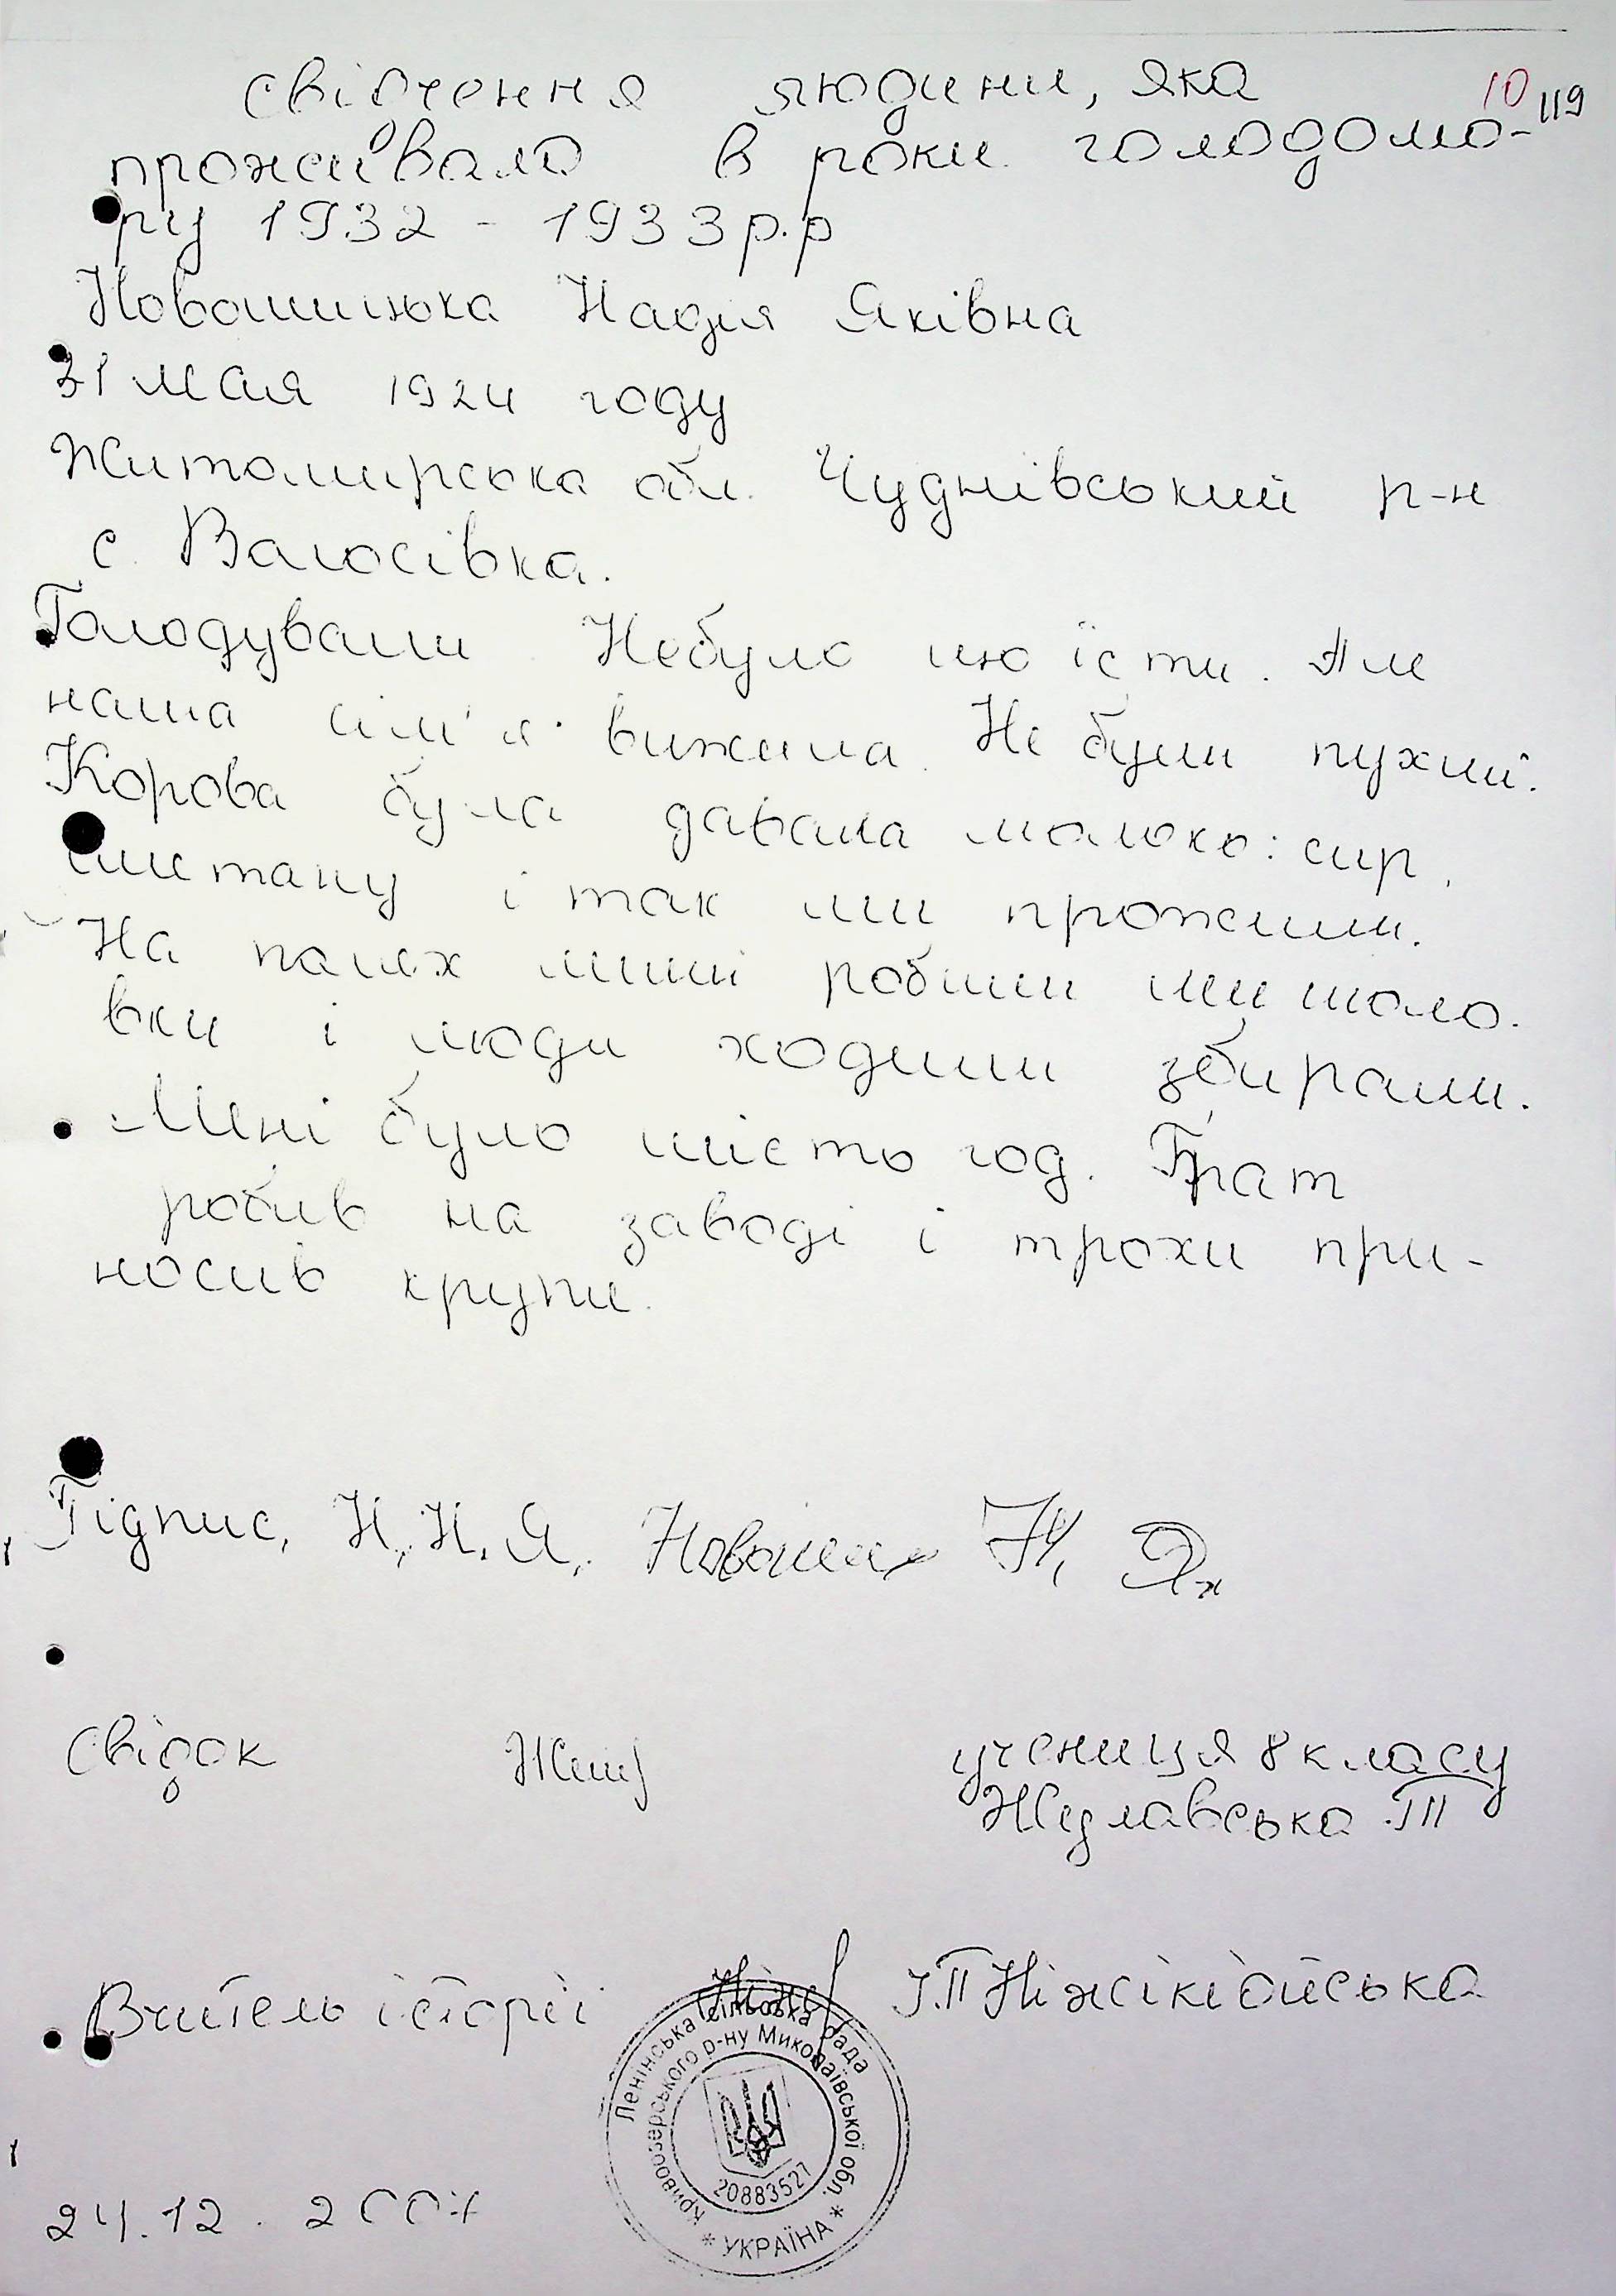 Свідчення людини, яка
10 119
проживала в роки голодомо-
ру 1932 - 1933 р.р
Надія Яківна
31 мая 1924 году
Житомирська обл. Чуднівський р-н
с. Валосівка.
Голодували. Небуло що їсти. Але
наша сім'я вижила. Не були пухлий.
Корова була давала молоко: сир,
сметану і так ми прожили.
На полях миші робили ми шало-
вки і люди ходили збирали.
Мені було шість год. Брат
робив на заводі і трохи при-
носив крупи.
Підпис, Н, Н, Я,
Свідок
учениця 8 класу
Вчитель історії
І.П.
Ленінська сільська рада
Кривоозерського р-ну Миколаївської обл.
20883527
* УКРАЇНА *
24.12.2007